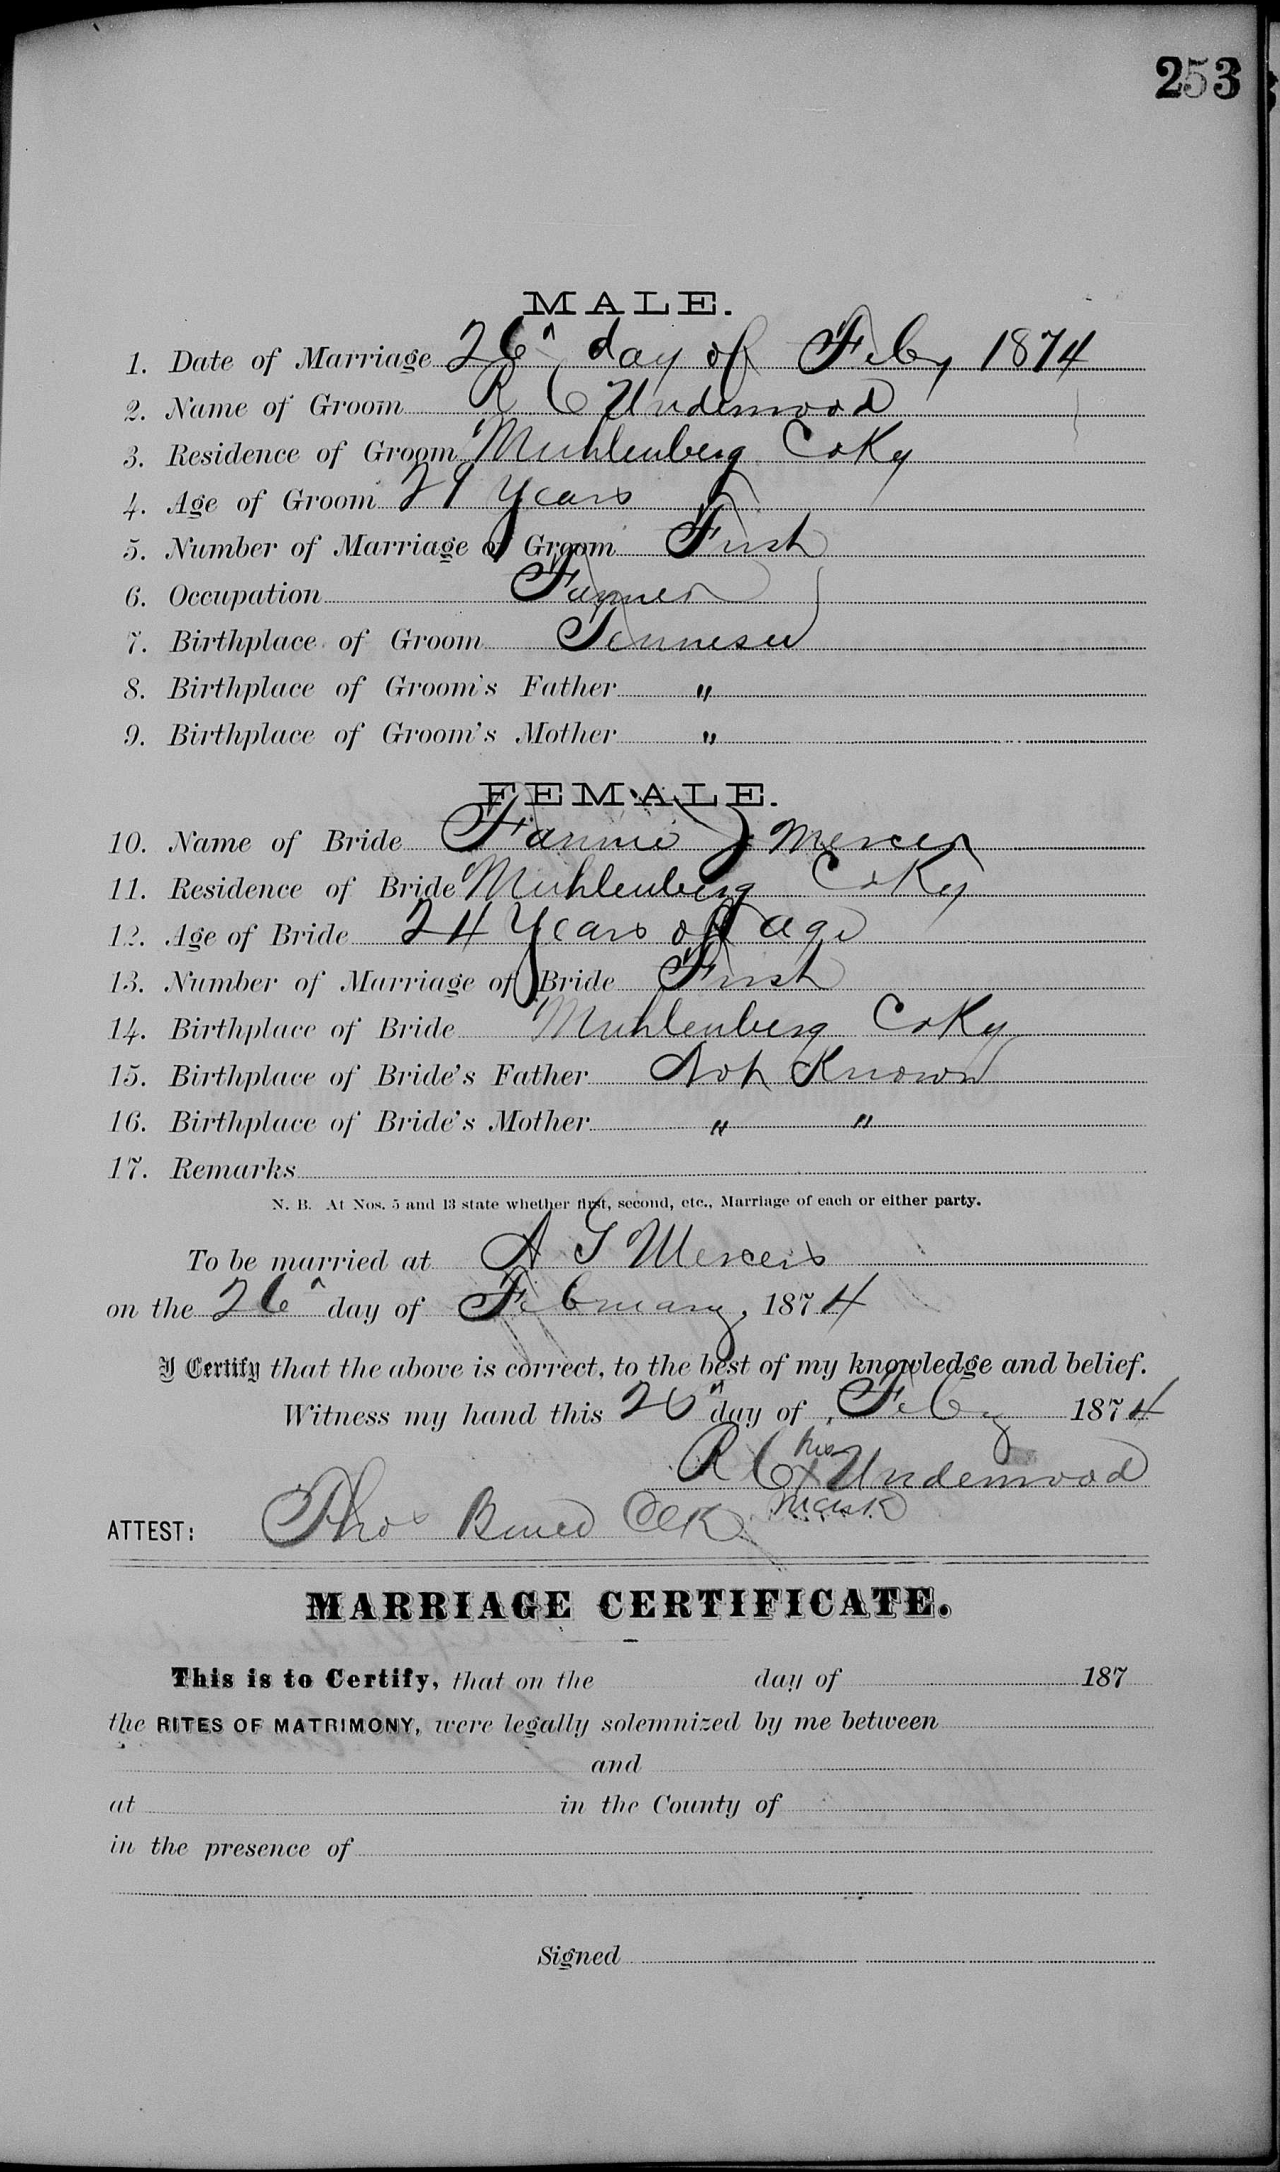 253
MALE.
1. Date of Marriage 26" day of Feby 1874
2. Name of Groom R C Underwood
3. Residence of Groom Muhlenberg Co Ky
4. Age of Groom 21 Years
5. Number of Marriage of Groom First
6. Occupation Farmer
7. Birthplace of Groom Tennessee
8. Birthplace of Groom's Father "
9. Birthplace of Groom's Mother "
FEMALE.
10. Name of Bride Fannie J Mercer
11. Residence of Bride Muhlenberg Co Ky
12. Age of Bride 24 Years of age
13. Number of Marriage of Bride First
14. Birthplace of Bride Muhlenberg Co Ky
15. Birthplace of Bride's Father Not Known
16. Birthplace of Bride's Mother " "
17. Remarks
N. B. At Nos. 5 and 13 state whether first, second, etc., Marriage of each or either party.
To be married at A G Mercers
on the 26" day of February, 1874
I Certify that the above is correct, to the best of my knowledge and belief.
Witness my hand this 26" day of Feby 1874
R C his x mark Underwood
ATTEST: Thos Clk
MARRIAGE CERTIFICATE.
This is to Certify, that on the day of 187
the RITES OF MATRIMONY, were legally solemnized by me between
and
at in the County of
in the presence of
Signed